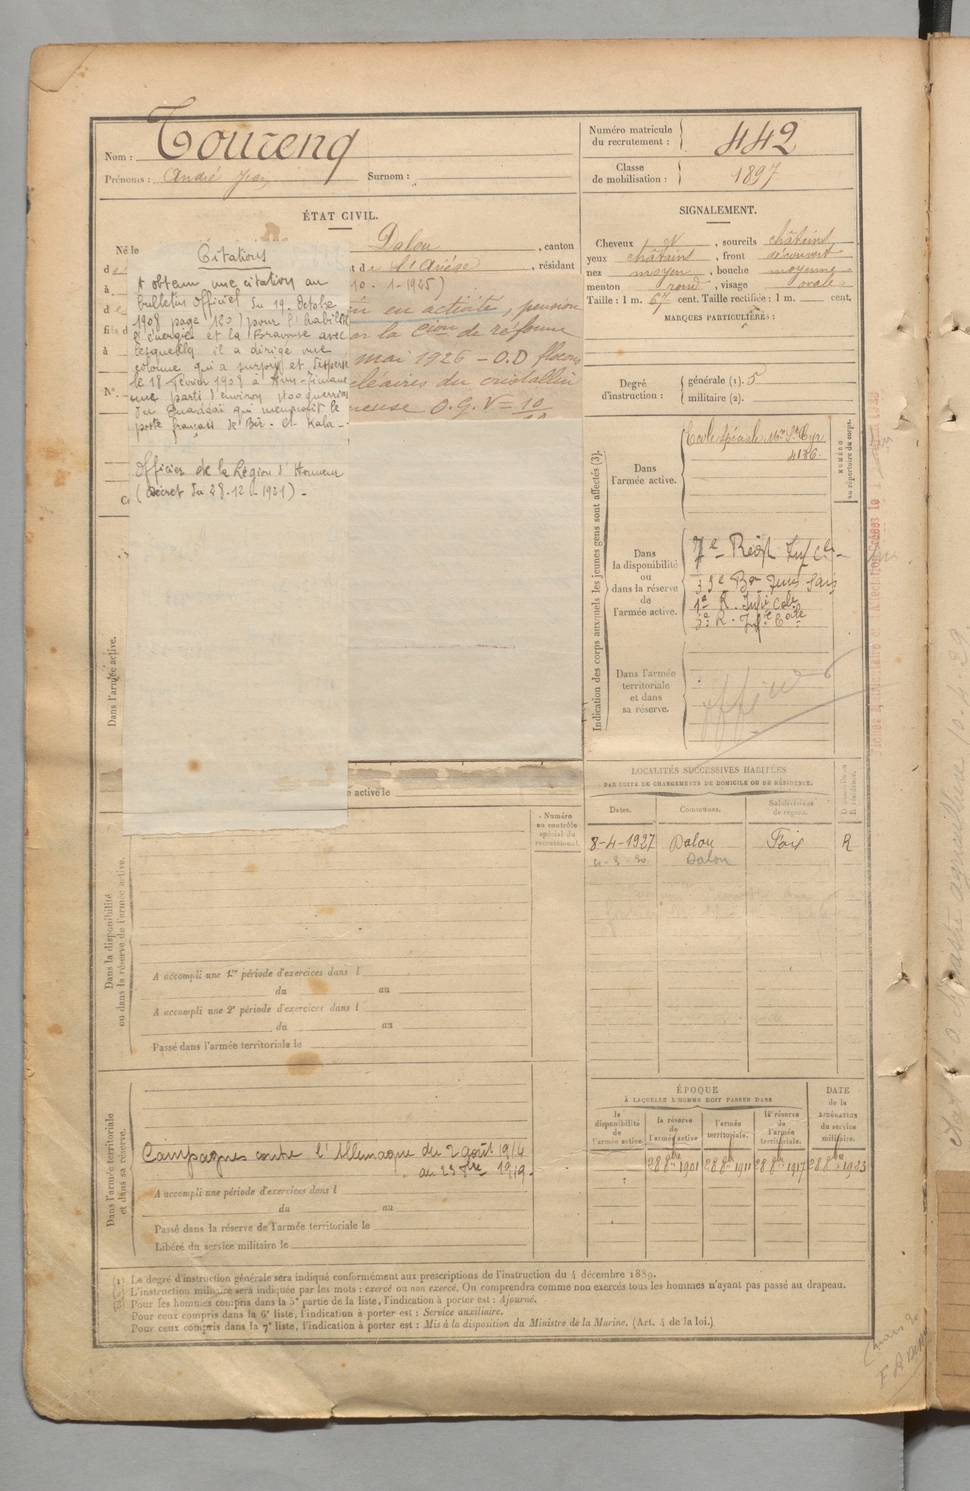 Nom : Tourenq
Prénoms : André Jean Surnom :
Numéro matricule du recrutement : 442
Classe de mobilisation : 1897
ÉTAT CIVIL.
Né le
Dalou , canton
de l'Ariège , résidant
10 - 1-1925)
en activité, pension
la Cion de réforme
mai 1926 - O.D flocons
cléaires du cristallin
O.G. V = 10
Citations
A obtenu une citation au
bulletin officiel du 19 Octobre
1908 page 1207 pour l'habileté
l'énergie et la Bravoure avec
lesquelles il a dirigé une
colonne qui a surpris et dispersé
le 18 février 1908 à
une parti d'environ guerriers
du Ouadaï qui menaçait le
poste français de Bir - et Kala -
Officier de la Légion d'Honneur
(Décret du 28-12-1921) -
SIGNALEMENT.
Cheveux N , sourcils châtains
yeux châtains , front découvert
nez moyen , bouche moyenne
menton rond , visage ovale
Taille : 1 m. 67 cent. Taille rectifiée : 1 m. cent.
MARQUES PARTICULIÈRES :
Degré d'instruction : générale (1). 5
militaire (2).
Indication des corps auxquels les jeunes gens sont affectés (3).
NUMÉRO au répertoire du corps.
Dans l'armée active.
École Spéciale Mre St Cyr
4186.
Dans la disponibilité ou dans la réserve de l'armée active.
7e Régt Inf Cle
1e R. Infie Cole
3e R. Infie Cole
Dans l'armée territoriale et dans sa réserve.
Dans l'armée active.
e active le
LOCALITÉS SUCCESSIVES HABITÉES
PAR SUITE DE CHANGEMENTS DE DOMICILE OU DE RÉSIDENCE.
Dates. Communes. Subdivisions de région. D domicile ou R résidence.
8-4-1927 Dalou Foix R
Dalou
Numéro au contrôle spécial du recrutement.
Dans la disponibilité ou dans la réserve de l'armée active.
A accompli une 1re période d'exercices dans l
du au
A accompli une 2e période d'exercices dans l
du au
Passé dans l'armée territoriale le
Dans l'armée territoriale et dans sa réserve.
Campagnes contre l'Allemagne du 2 août 1914
au 23 8bre 1919.
A accompli une période d'exercices dans l
du au
Passé dans la réserve de l'armée territoriale le
Libéré du service militaire le
ÉPOQUE
À LAQUELLE L'HOMME DOIT PASSER DANS
la disponibilité de l'armée active.
la réserve de l'armée active
l'armée territoriale.
la réserve de l'armée territoriale.
DATE de la LIBÉRATION du service militaire.
28 8bre 1901 28 8bre 1911 28 8bre 1917 28 8bre 1923
(1) Le degré d'instruction générale sera indiqué conformément aux prescriptions de l'instruction du 4 décembre 1889.
(2) L'instruction militaire sera indiquée par les mots : exercé ou non exercé. On comprendra comme non exercés tous les hommes n'ayant pas passé au drapeau.
(3) Pour les hommes compris dans la 5e partie de la liste, l'indication à porter est : Ajourné.
Pour ceux compris dans la 6e liste, l'indication à porter est : Service auxiliaire.
Pour ceux compris dans la 7e liste, l'indication à porter est : Mis à la disposition du Ministre de la Marine. (Art. 4 de la loi.)